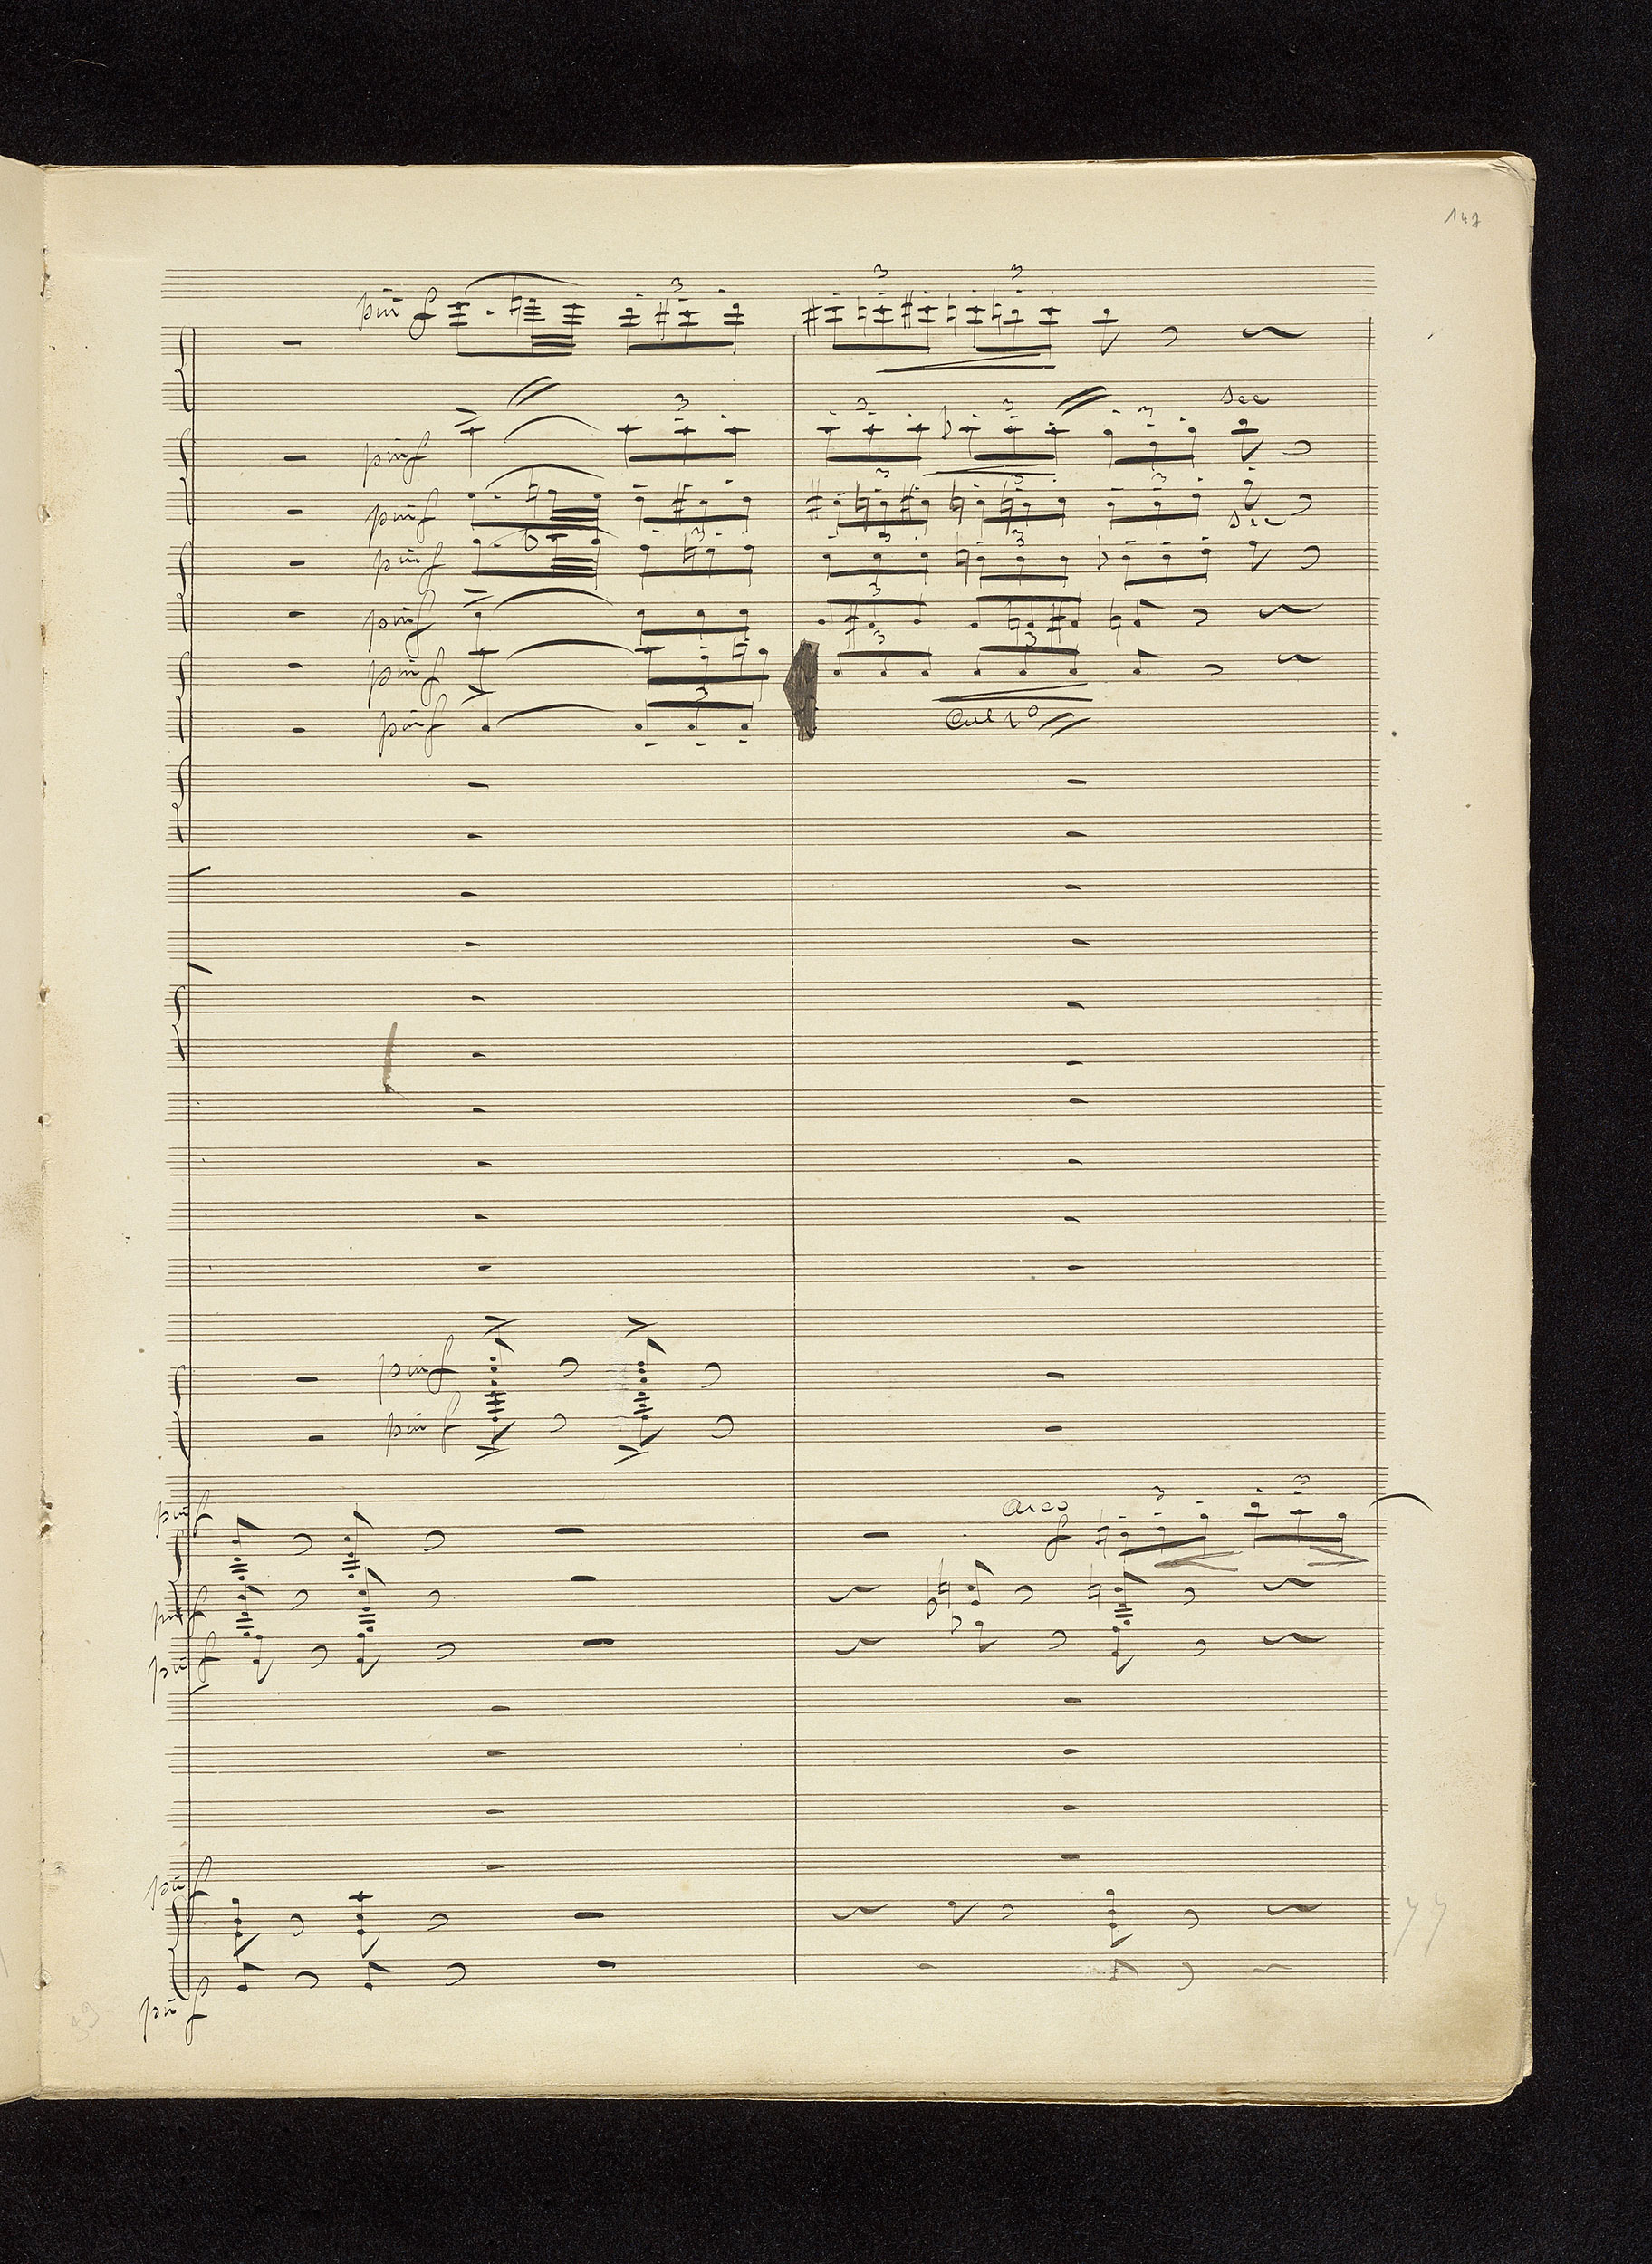 147
più f
3
3
3
3
sec
più f
3
3
3
più f
3
3
3
sec
più f
3
3
3
più f
3
più f
3
3
più f
3
Col 1º
più f
più f
arco
3
3
più f
f
più f
più f
più f
77
più f